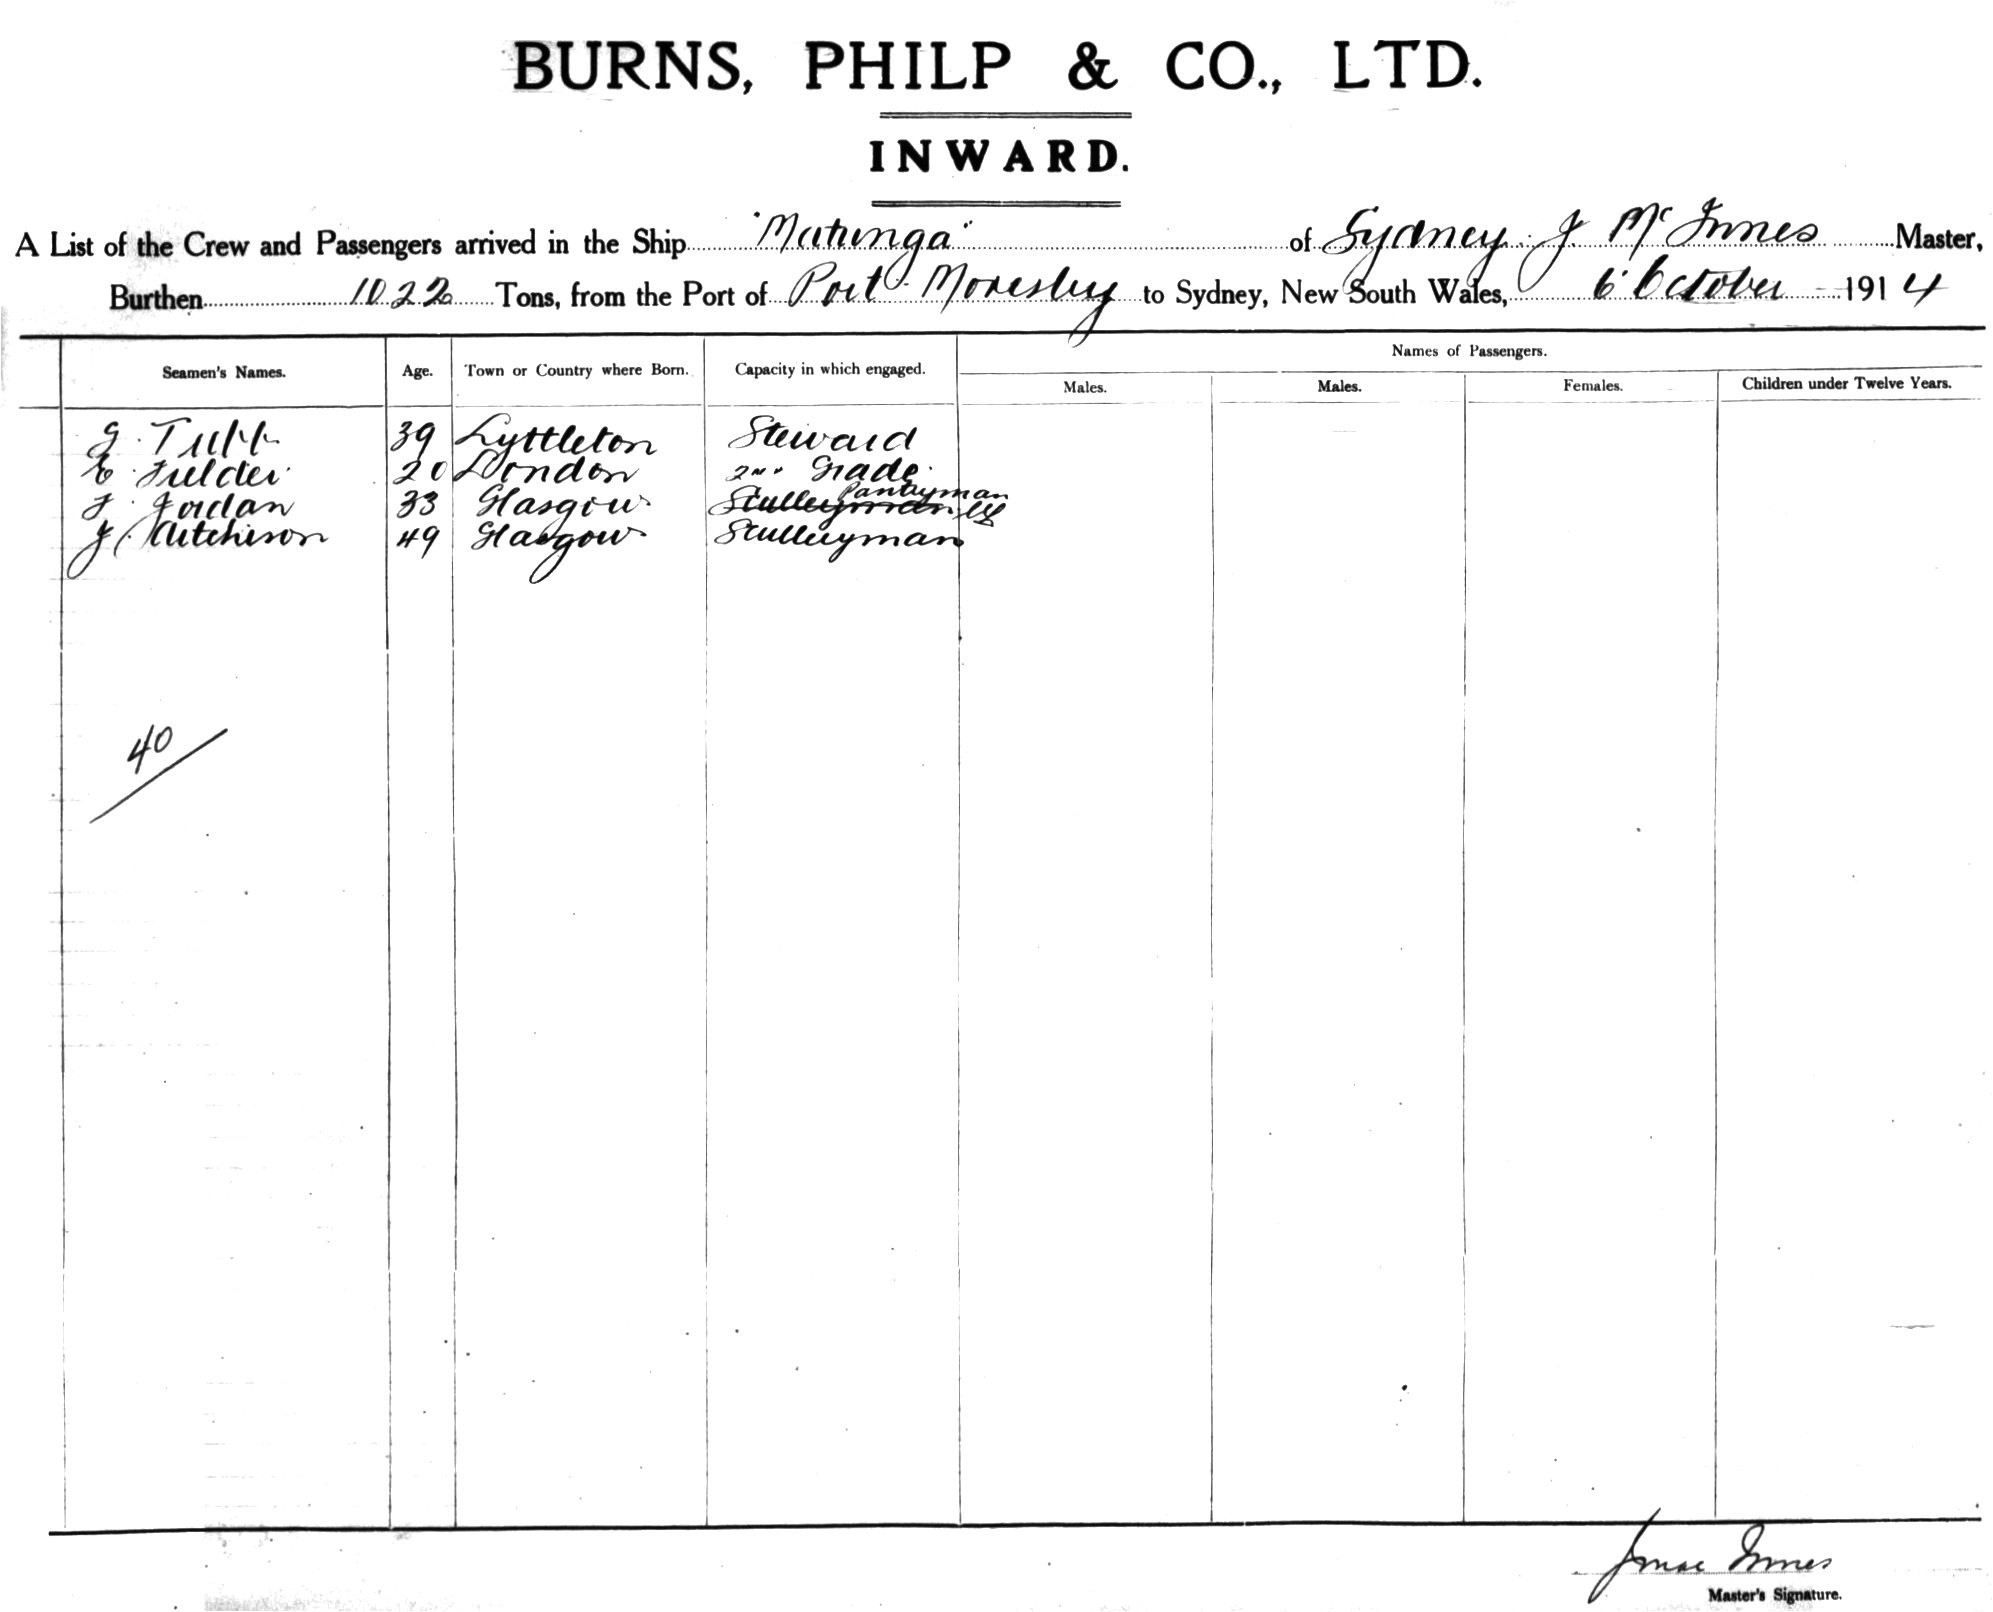 BURNS, PHILP & CO., LTD.
INWARD.
A List of the Crew and Passengers arrived in the Ship "Matunga" of Sydney. J Mc Innes Master,
Burthen 1022 Tons, from the Port of Port Moresby to Sydney, New South Wales, 6 October 1914
Names of Passengers.
Seamen's Names. Age. Town or Country where Born. Capacity in which engaged. Males. Males. Females. Children under Twelve Years.
39 Lyttleton Steward
E. Fielder 20 London 2nd Grade.
Pantryman
F. Jordan 33 Glasgow Sculleryman
J. Aitchison 49 Glasgow Sculleryman
40
Innes
Master's Signature.